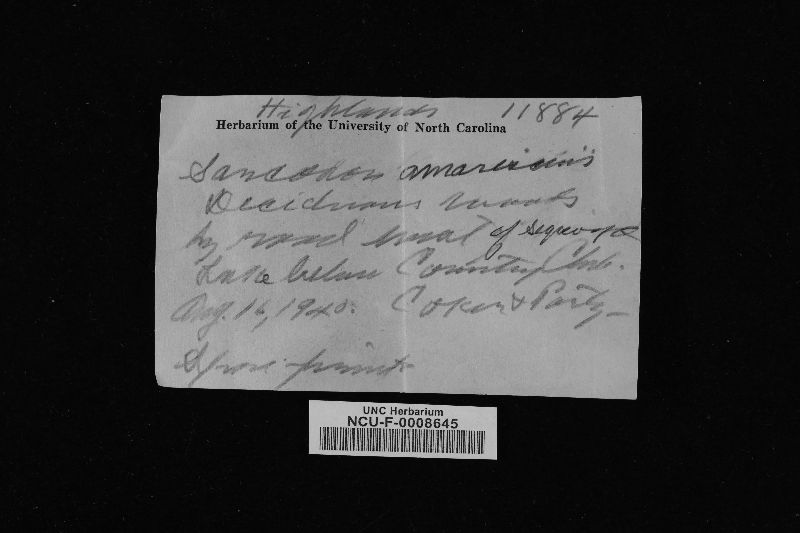 Highlands 11884
Herbarium of the University of North Carolina
Sarcodon
Deciduous woods
by road west of Sequoya
Lake below Country Club.
Aug. 16, 1940. Coker & Party
Spore print
UNC Herbarium
NCU-F-0008645